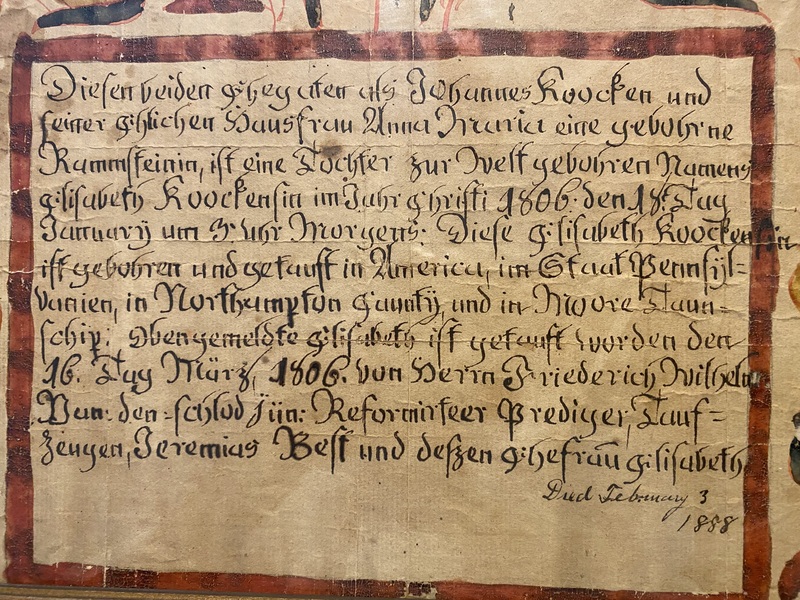 Diesen beiden Ehegaten als Johannes Koocken und
seiner Ehlichen Hausfrau Anna Maria eine gebohrne
Rammsteinin, ist eine Tochter zur Welt gebohren Namens
Elisabeth Koockensin im Jahr Christi 1806. den 18. Tag
January um 3. uhr Morgens. Diese Elisabeth Koockensin
ist gebohren und getauft in America, im Staat Pennsyl-
vanien, in Northampton Caunty, und in Moore Taun-
schip. Obengemeldte Elisabeth ist getauft worden den
16. Tag März, 1806. von Herrn Friederich Wilhelm
Van: den-schlod Jün: Reformirteer Prediger, Tauf-
zeugen, Jeremias Best und deßzen Ehefrau Elisabeth
Died February 3
1888